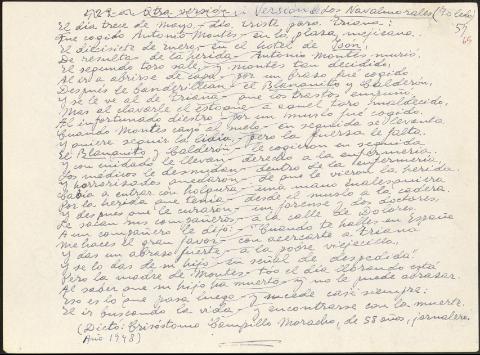 Otra versión - Versión de Navalmorales (Toledo)
57
El día trece de Mayo, - día triste para Triana:
Fue cogido Antonio Montes - en la plaza mejicana.
El diecisiete de enero, - en el hotel de
De resultas de la herida - Antonio Montes murió.
El segundo toro sale, - y Montes tan decidido,
Al ir a abrirse de capa, - por un brazo fue cogido
Después le banderillean - el Blanquito y Calderón,
Y se le va al de Triana - que los trastos empuñó.
Mas al clavarle el estoque - a aquel toro maldecido,
El infortunado diestro - por un muslo fue cogido.
Cuando Montes cayó al suelo, - en seguida se levanta
Y quiere seguir la lidia, - pero la fuerza le falta.
El Blanquito y Calderón - le cogieron en seguida
Y con cuidado le llevan - derecho a la enfermería.
Los médicos le desnudan - dentro de la enfermería,
Y horrorizados quedaron - de que le vieron la herida.
Cabía a entrar con holgura - una mano cualesquiera
Por la herida que tenía - desde el muslo a la cadera.
Y después que le curaron - un forense y dos doctores,
Le sacan sus compañeros - a la calle de Dolores.
A un compañero le dijo: - Cuando te halles en España
Me haces el gran favor - con acercarte a Triana
Y das un abrazo fuerte - a la pobre viejecilla,
Y se lo das de mi hijo - en señal de despedida.
Pero la madre de Montes - tós el día llorando está
Al saber que su hijo ha muerto - y no le puede abrazar.
Eso es lo que pasa luego - y sucede casi siempre:
El ir buscando la vida - y encontrarse con la muerte.
(Dictó: Crisóstomo Campillo Moracho, de 58 años, jornalero.
Año 1948)